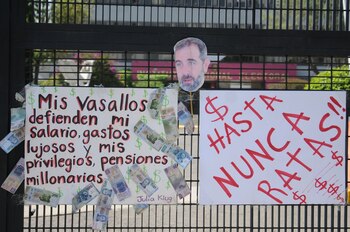 Mis Vasallos
defienden mi
salario, gastos
lujosos y mis
privilegios, pensiones
millonarias
Julia Klug
$ HASTA
NUNCA
RATAS!!
$$$